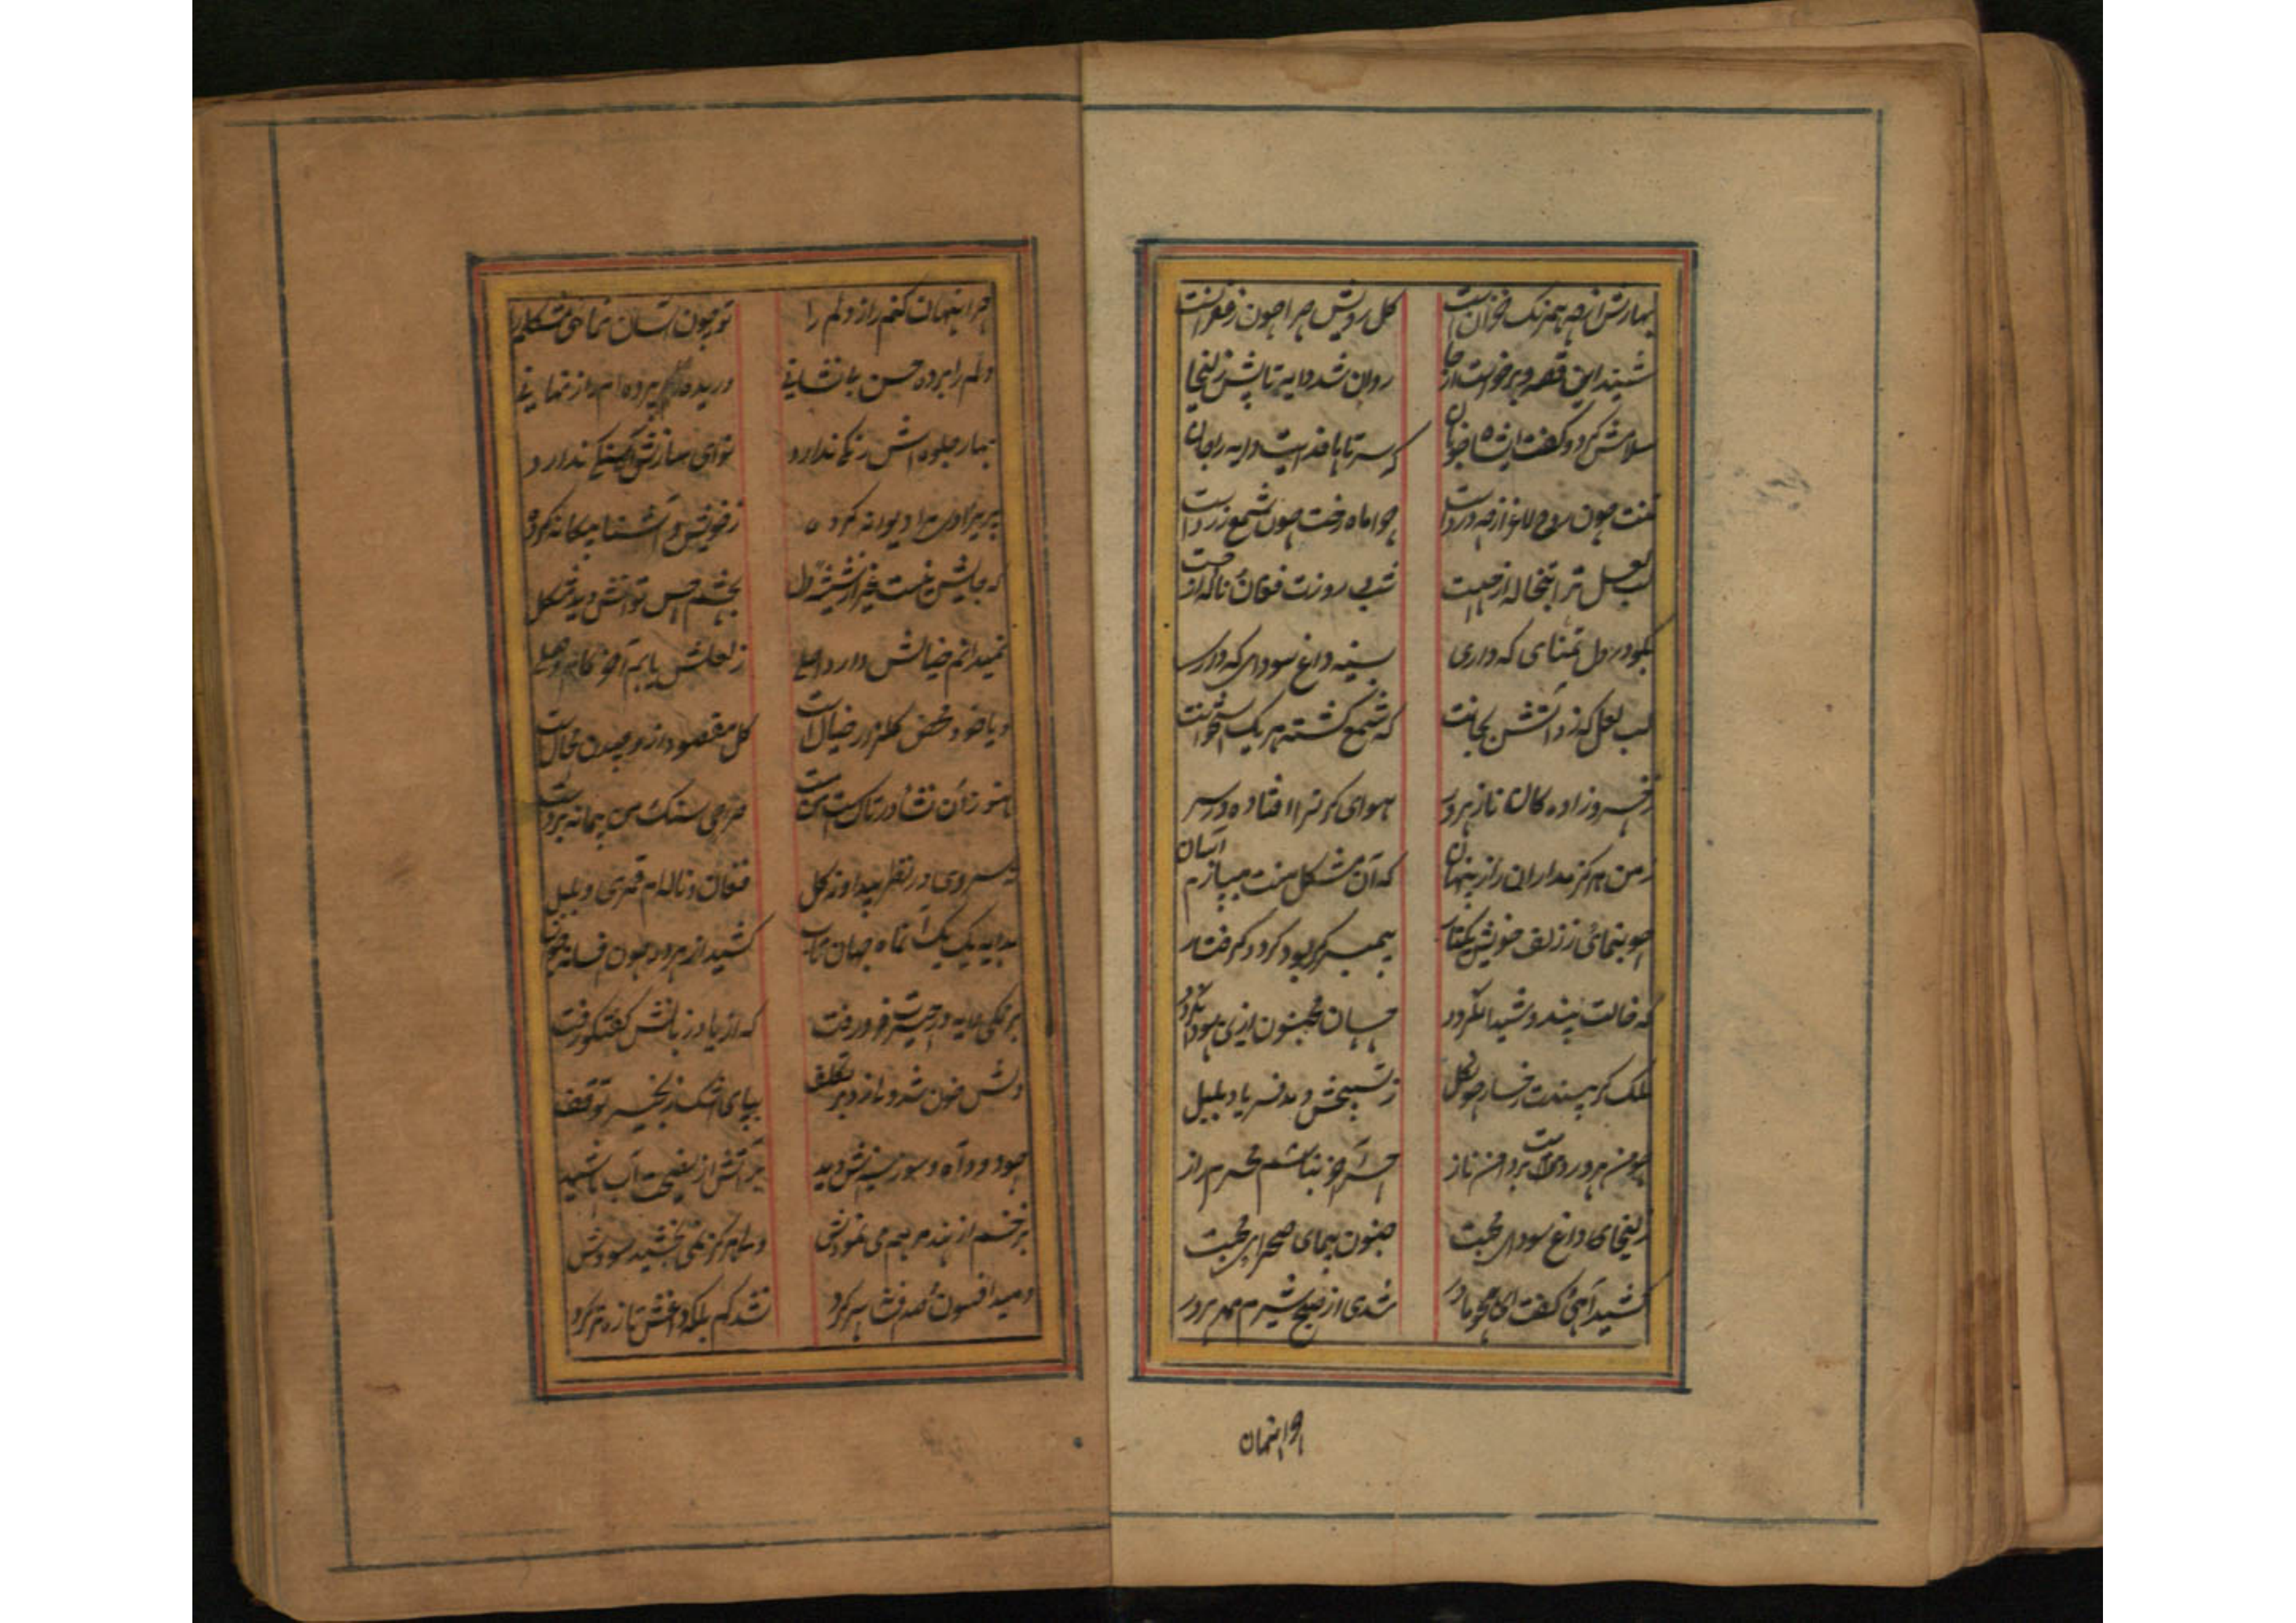 بهارش از چه همرنگ خزان است گل رویش چرا چون زعفرانست
شنید این قصه و برخواست از جا روان شد دایه تا پیش زلیخا
سلامش کرد و گفت ای شاه خوبان که سر تا پا فدایت دایه را جان
تنت چون موی لاغر از چه درد است چرا ماه رخت چون شمع زرد است
لب لعل ترا تبخاله از چیست شب و روزت فغان و ناله از چیست
بگو در دل تمنای که داری بسینه داغ سودای که داری
لب لعل که زد آتش بجانت که شمع کشته هر یک استخوانت
ز خسرو زاده کان ناز پرور هوای کی ترا افتاده در سر
ز من هرگز مدار این راز پنهان که آن مشکل منت میسازم آسان
چو بنمائی ز زلف خویش یکتار پیمبر گر بود گردد گرفتار
که خالت بیند و شیدا نگردد چسان مجنون ازین سودا نگردد
ملک گر بیندت رخسار چون گل ز تسبیحش دمد فریاد بلبل
چو من پروردمت بر دامن ناز چرا آخر نباشم محرم راز
زلیخای داغ سودای محبت جنون پیمای صحرای محبت
کشید آهی و گفت ای همچو مادر شدی از صبح شیرم مهر پرور
چرا پنهان
چرا پنهان کنم راز دلم را تو چون آسان نمائی مشکلم را
دلم را برده حسن بی نشانی دریده پرده ام راز نهانی
بهار جلوه اش رنگی ندارد نوای سازش آهنگی ندارد
پریزادی مرا دیوانه کرده ز خویش و آشنا بیگانه کرده
که جایش نیست غیر از شیشه دل بچشم حس توانش دید مشکل
نمیدانم خیالش دارد اصلی ز لعلش یابم آخر کام وصلی
و یا خود محض گلزار خیال است گل مقصود از و چیدن محال است
هنوز آن نشأ در تاک است صراحی سنگ من پیمانه
نه سروی در نظر پیدا و نه گل فغان و ناله ام قمری و بلبل
بدایه یک بیک آن ماه جهان تاب کشید از سرود چون فسانه
برنگی دایه در حیرت فرو رفت که از یاد زبانش گفتگو رفت
دلش خون شد و ناز بپای اشک زنجیر توقف
چو دود آه و سوز سینه اش دید بر آتش از نصیحت آب پاشید
بزخم از پند مرهم می نمودش ولی هرگز نمی بخشید سودش
دمید افسون صدفش هر کرد نشد کم بلکه داغش تازه تر کرد